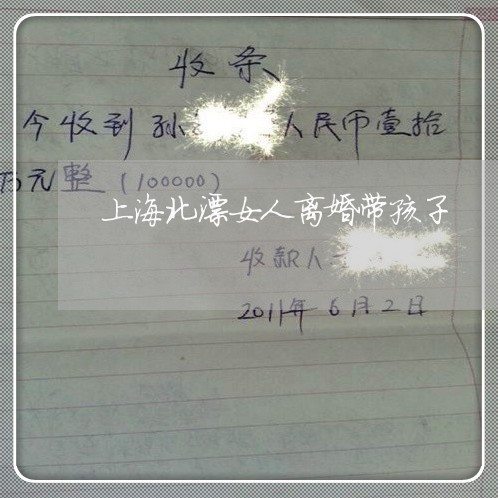 收条
今收到孙人民币壹拾
万元整(100000)
上海北漂女人离婚带孩子
收款人
2011年6月2日